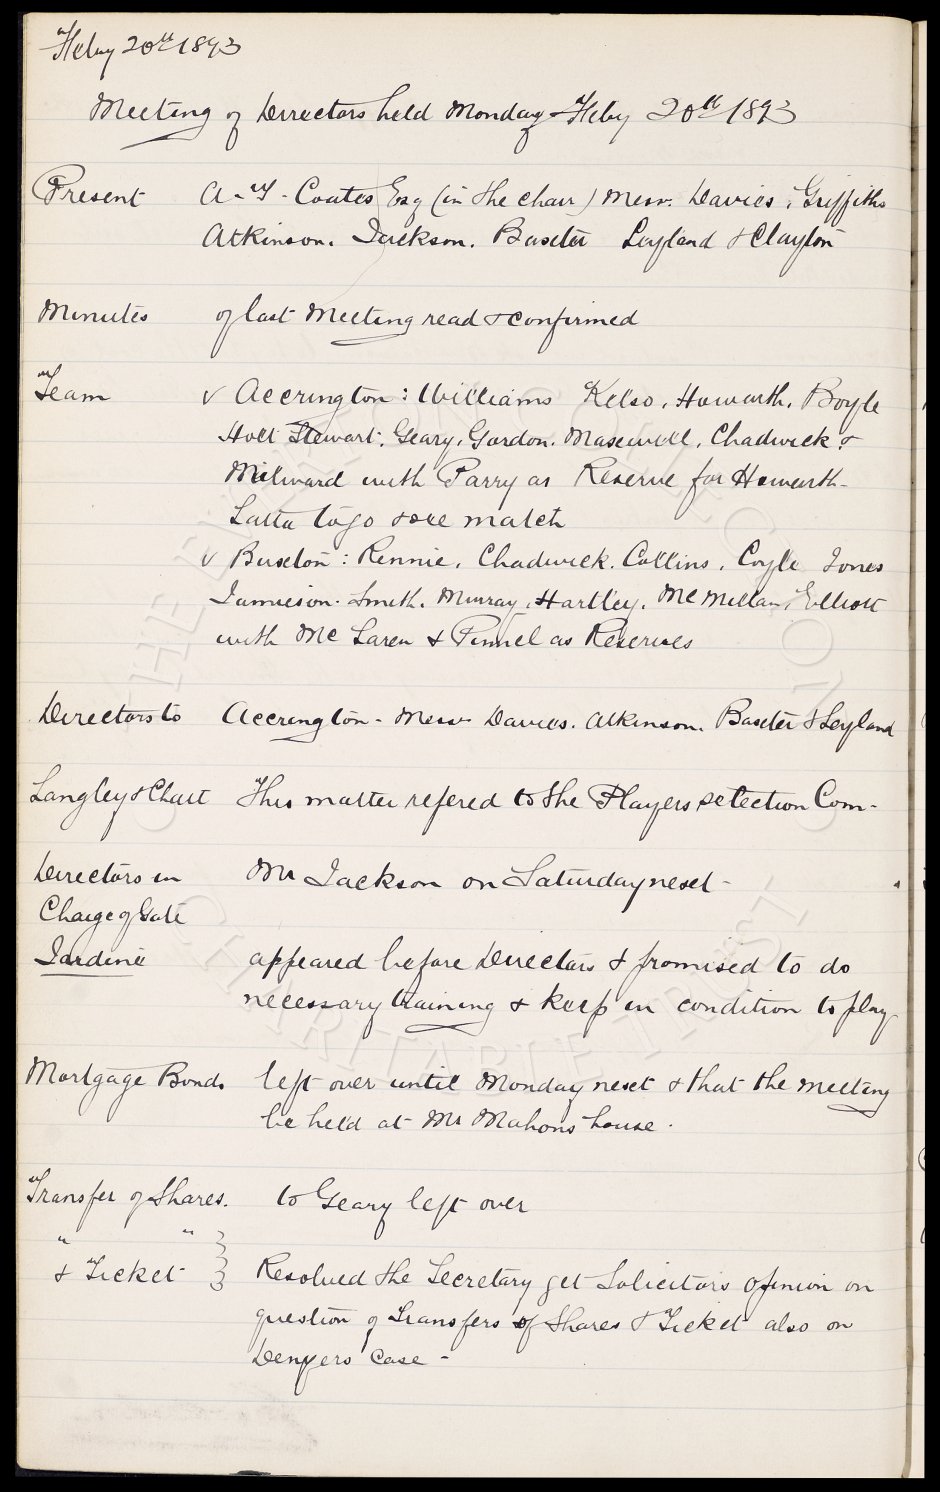 Feby 20th 1893
Meeting of Directors held Monday Feby 20th 1893
Present A-T-Coates Esq (in the chair) Messrs. Davies, Griffiths
Atkinson. Jackson. Baxter Leyland & Clayton
Minutes of last Meeting read & confirmed
Team v Accrington: Williams Kelso. Howarth. Boyle
Holt Stewart. Geary. Gordon. Maxwell. Chadwick &
Milward with Parry as Reserve for Howarth-
Latta to go & see match
v Buxton: Rennie. Chadwick. Collins. Coyle Jones
Jamieson. Smith. Murray. Hartley. McMillan, Elliott
with McLaren & Pinnel as Reserves
Directors to Accrington - Messrs Davies. Atkinson. Baxter & Leyland
Langley & Chart This matter refered to the Players selection Com-
Directors in Mr Jackson on Saturday next -
Charge of Gate
Jardine appeared before Directors & promised to do
necessary training & keep in condition to play
Mortgage Bonds left over until Monday next & that the meeting
be held at Mr Mahons house.
Transfer of Shares. to Geary left over
" "
& Ticket Resolved the Secretary get Solicitors opinion on
question of Transfers of Shares & Ticket also on
Denyers case -
THE EVERTON COLLECTION
CHARITABLE TRUST